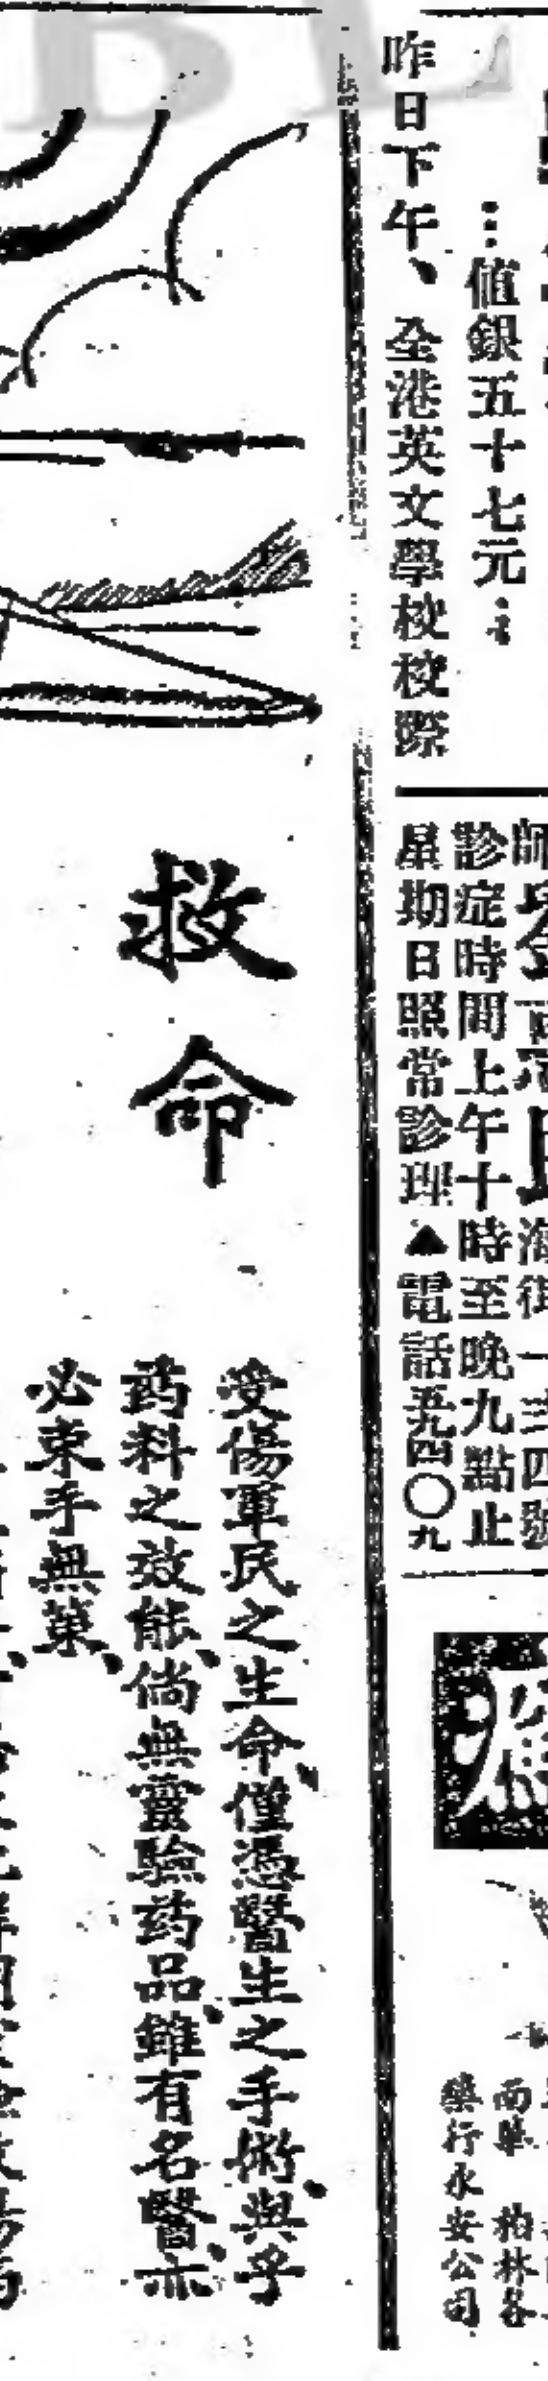 …値銀五十七元…
昨日下午、全港英文學校校際
診症時間上午十時至晚九點止
星期日照常診理▲電話五九四〇九
海街一弍四號
南華 柏林各
藥行永安公司
救命
受傷軍民之生命、僅憑醫生之手術、與乎
药料之效能、倘無靈驗药品、雖有名醫、亦
必束手無策、